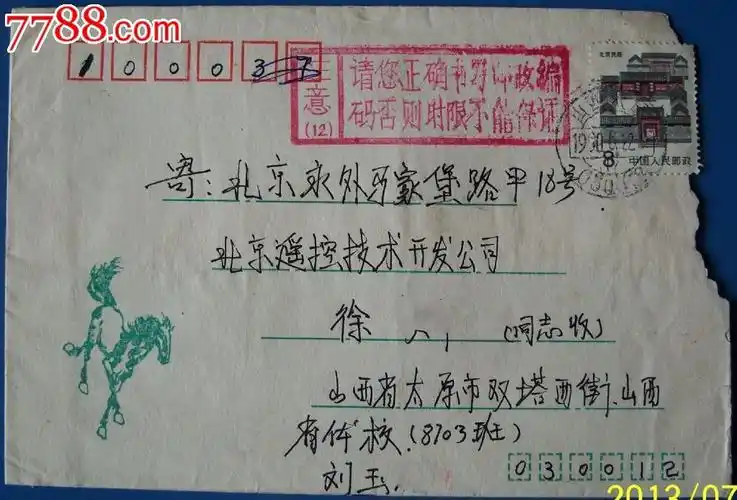 7788.com
100037
注意
(12)
请您正确书写邮政编
码否则时限不能保证
北京民居
1990.6.22
8
中国人民邮政
寄:北京永外马家堡路甲18号
北京遥控技术开发公司
徐 (同志收)
山西省太原市双塔西街山西
省体校.(8703班)
刘玉.
030012
2013/07